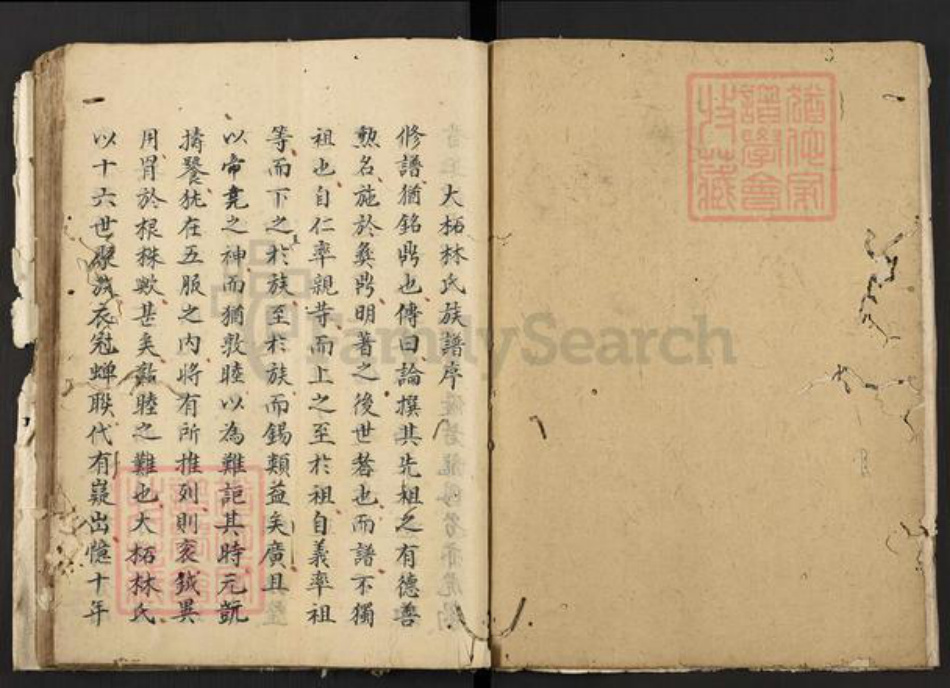 大柘林氏族譜序
修譜猶銘鼎也傳曰論撰其先祖之有德善
勲名施於彝鼎明著之後世者也而譜不獨
祖也自仁率親等而上之至於祖自義率祖
等而下之於族至於族而錫類益矣廣且
以帝堯之神而猶敦睦以為難詎其時元凱
擣饕犹在五服之内將有所推列則衮鉞異
用胃於根株歟甚矣敦睦之難也大柘林氏
以十六世聚族衣冠蝉聨代有嶷出憶十年
譜學會
FamilySearch